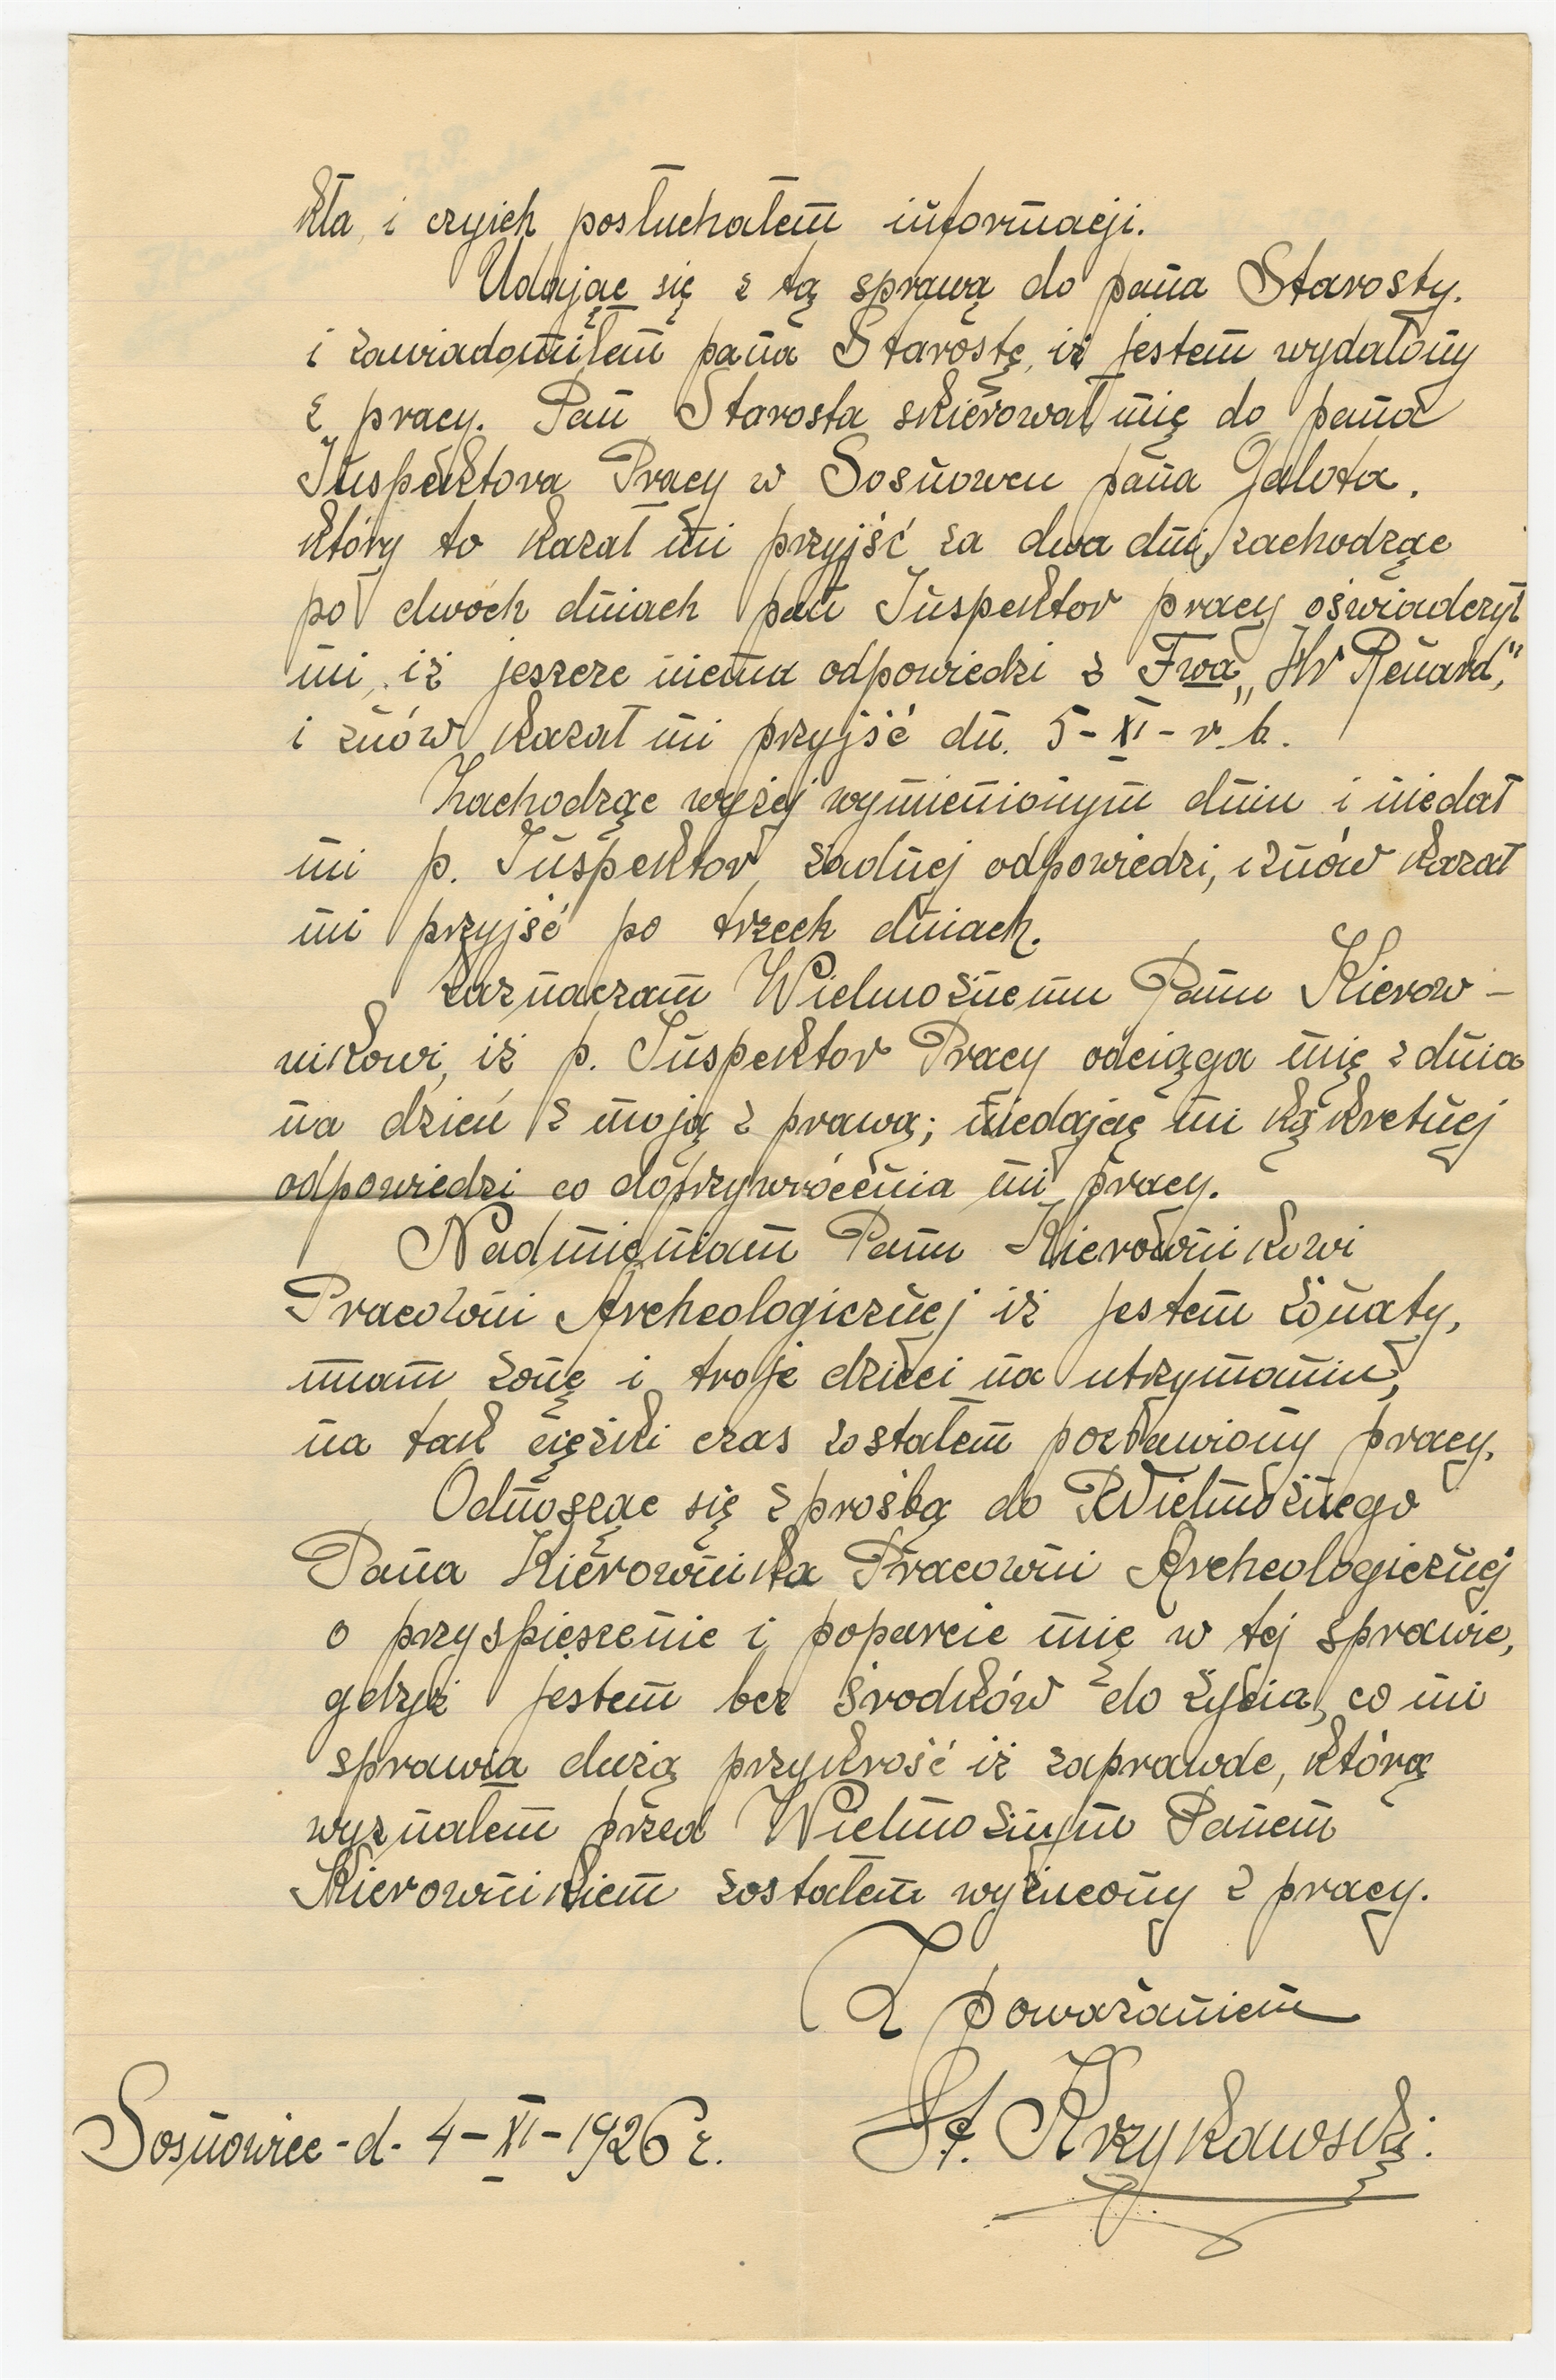 kta, i czyich posłuchałem informacji.
Udając się z tą sprawą do pana Starosty.
i zawiadomiłem pana Starostę, iż jestem wydalony
z pracy. Pan Starosta skierował mię do pana
Inspektora Pracy w Sosnowcu pana Galota.
który to kazał mi przyjść za dwa dni, zachodząc
po dwóch dniach pan Inspektor pracy oświadczył
mi, iż jeszcze niema odpowiedzi z Fwa „Hr Renard,"
i znów kazał mi przyjść dn. 5-XI-r.b.
Zachodząc wyżej wymienionym dniu i niedał
mi p. Inspektor żadnej odpowiedzi, i znów kazał
mi przyjść po trzech dniach.
Zaznaczam Wielmożnemu Panu Kierow-
nikowi, iż p. Inspektor Pracy odciąga mię z dnia
na dzień z moją z prawą; niedając mi kąkretnej
odpowiedzi co doprzywrócenia mi pracy.
Nadmieniam Panu Kierownikowi
Pracowni Archeologicznej iż jestem żonaty,
mam żonę i troje dzieci na utrzymaniu,
na tak ciężki czas zostałem pozbawiony pracy.
Odnosząc się z prośbą do Wielmożnego
Pana Kierownika Pracowni Archeologicznej
o przyspieszenie i poparcie mię w tej sprawie,
gdzyż jestem bez środków do życia, co mi
sprawia dużą przykrość iż zaprawde, którą
wyznałem przed Wielmożnym Panem
Kierownikiem zostałem wyżucony z pracy.
Z poważaniem
St. Krzykawski.
Sosnowiec-d-4-XI-1926 r.